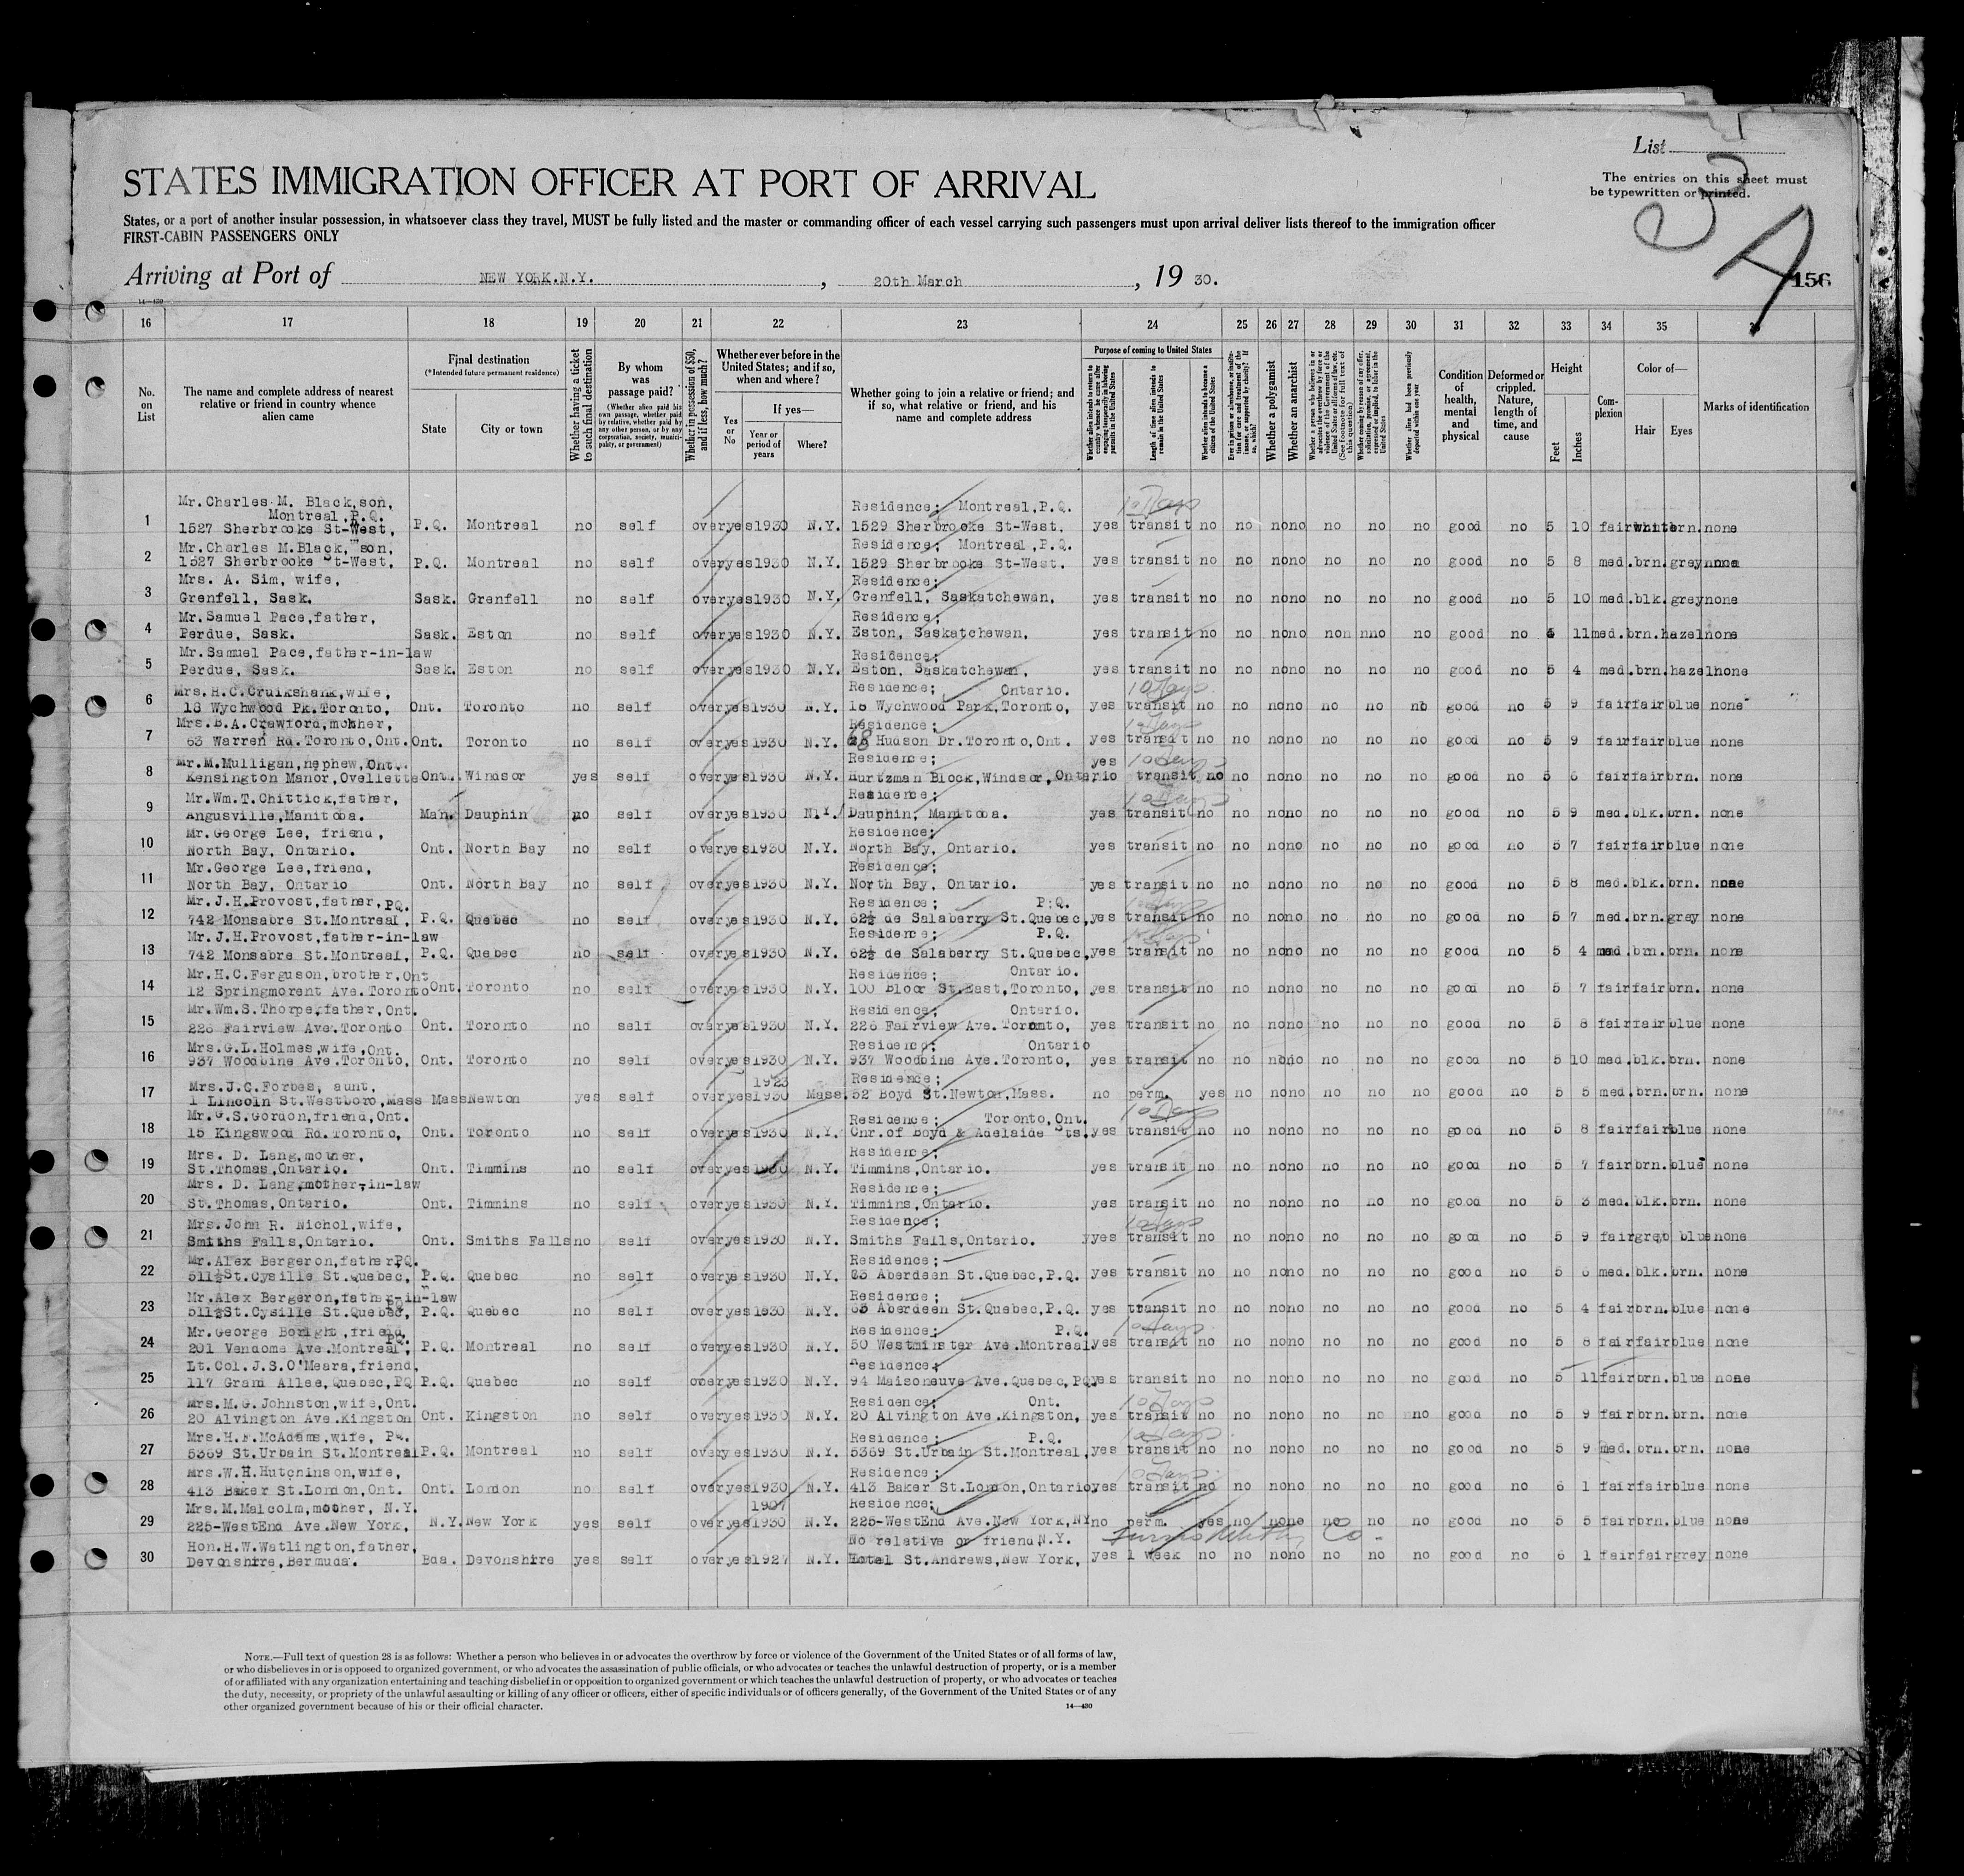 List
The entries on this sheet must
be typewritten or printed.
STATES IMMIGRATION OFFICER AT PORT OF ARRIVAL
States, or a port of another insular possession, in whatsoever class they travel, MUST be fully listed and the master or commanding officer of each vessel carrying such passengers must upon arrival deliver lists thereof to the immigration officer
FIRST-CABIN PASSENGERS ONLY
A
Arriving at Port of NEW YORK.N.Y. , 20th March , 19 30.
156
14-430
16 17 18 19 20 21 22 23 24 25 26 27 28 29 30 31 32 33 34 35
No. on List
The name and complete address of nearest relative or friend in country whence alien came
Final destination
(*Intended future permanent residence)
State
City or town
Whether having a ticket to such final destination
By whom was passage paid?
(Whether alien paid his own passage, whether paid by relative, whether paid by any other person, or by any corporation, society, municipality, or government)
Whether in possession of $50, and if less, how much?
Whether ever before in the United States; and if so, when and where?
Yes or No
If yes—
Year or period of years
Where?
Whether going to join a relative or friend; and if so, what relative or friend, and his name and complete address
Purpose of coming to United States
Length of time alien intends to remain in the United States
Whether alien intends to become a citizen of the United States
Whether a polygamist
Whether an anarchist
Whether alien had been previously deported within one year
Condition of health, mental and physical
Deformed or crippled. Nature, length of time, and cause
Height
Feet
Inches
Complexion
Color of—
Hair
Eyes
Marks of identification
Mr. Charles M. Black,son, Residence; Montreal,P.Q. 10 Days
Montreal,P.Q.
1 1527 Sherbrooke St-West, P.Q. Montreal no self over yes 1930 N.Y. 1529 Sherbrooke St-West. yes transit no no no no no no no good no 5 10 fair white brn. none
Mr. Charles M.Black, son, Residence; Montreal,P.Q.
2 1527 Sherbrooke St-West, P.Q. Montreal no self over yes 1930 N.Y. 1529 Sherbrooke St-West. yes transit no no no no no no no good no 5 8 med. brn. grey none
Mrs. A. Sim, wife, Residence;
3 Grenfell, Sask. Sask. Grenfell no self over yes 1930 N.Y. Grenfell, Saskatchewan, yes transit no no no no no no no good no 5 10 med. blk. grey none
Mr. Samuel Pace,father, Residence;
4 Perdue, Sask. Sask. Eston no self over yes 1930 N.Y. Eston, Saskatchewan, yes transit no no no no non nno no good no 11 med. brn. hazel none
Mr. Samuel Pace,father-in-law Residence;
5 Perdue, Sask. Sask. Eston no self over yes 1930 N.Y. Eston, Saskatchewan, yes transit no no no no no no no good no 5 4 med. brn. hazel none
Mrs.H.C.Cruikshank,wife, Residence; Ontario. 10 Days
6 18 Wychwood Pk.Toronto, Ont. Toronto no self over yes 1930 N.Y. 18 Wychwood Park,Toronto, yes transit no no no no no no no good no 5 9 fair fair blue none
Mrs.B.A.Crawford,mother, Residence; 10 Days
7 63 Warren Rd.Toronto,Ont. Ont. Toronto no self over yes 1930 N.Y. 68 Hudson Dr.Toronto,Ont. yes transit no no no no no no no good no 5 9 fair fair blue none
Mr.M.Mulligan,nephew,Ont. Residence; yes 10 Days
8 Kensington Manor,Ovellette Ont. Windsor yes self over yes 1930 N.Y. Hurtzman Block,Windsor,Ontario transit no no no no no no no good no 5 6 fair fair brn. none
Mr.Wm.T.Chittick,father, Residence; 10 Days
9 Angusville,Manitoba. Man. Dauphin no self over yes 1930 N.Y. Dauphin, Manitoba. yes transit no no no no no no no good no 5 9 med. blk. brn. none
Mr.George Lee, friend, Residence;
10 North Bay, Ontario. Ont. North Bay no self over yes 1930 N.Y. North Bay, Ontario. yes transit no no no no no no no good no 5 7 fair fair blue none
Mr.George Lee,friend, Residence;
11 North Bay, Ontario Ont. North Bay no self over yes 1930 N.Y. North Bay, Ontario. yes transit no no no no no no no good no 5 8 med. blk. brn. none
Mr.J.H.Provost,father,PQ. Residence; P.Q.
12 742 Monsabre St.Montreal, P.Q. Quebec no self over yes 1930 N.Y. 62½ de Salaberry St.Quebec, yes transit no no no no no no no good no 5 7 med. brn. grey none
Mr. J.H.Provost,father-in-law Residence; P.Q. 10 Days
13 742 Monsabre St.Montreal, P.Q. Quebec no self over yes 1930 N.Y. 62½ de Salaberry St.Quebec, yes transit no no no no no no no good no 5 4 med. brn. brn. none
Mr.H.C.Ferguson,brother,Ont Residence; Ontario.
14 12 Springmorent Ave.Toronto Ont. Toronto no self over yes 1930 N.Y. 100 Bloor St.East,Toronto, yes transit no no no no no no no good no 5 7 fair fair brn. none
Mr.Wm.S.Thorpe,father,Ont. Residence; Ontario.
15 226 Fairview Ave.Toronto Ont. Toronto no self over yes 1930 N.Y. 226 Fairview Ave.Toronto, yes transit no no no no no no no good no 5 8 fair fair blue none
Mrs.G.L.Holmes,wife,Ont. Residence; Ontario
16 937 Woodbine Ave.Toronto, Ont. Toronto no self over yes 1930 N.Y. 937 Woodbine Ave.Toronto, yes transit no no no no no no no good no 5 10 med. blk. brn. none
Mrs.J.C.Forbes, aunt, 1923 Residence;
17 1 Lincoln St.Westboro,Mass Mass Newton yes self over yes 1930 Mass. 52 Boyd St.Newton,Mass. no perm. yes no no no no no no good no 5 5 med. brn. brn. none
Mr.G.S.Gordon,friend,Ont. Residence; Toronto,Ont. 10 Days
18 15 Kingswood Rd.Toronto, Ont. Toronto no self over yes 1930 N.Y. Cnr.of Boyd & Adelaide Sts. yes transit no no no no no no no good no 5 8 fair fair blue none
Mrs. D. Lang,mother, Residence;
19 St.Thomas,Ontario. Ont. Timmins no self over yes 1930 N.Y. Timmins,Ontario. yes transit no no no no no no no good no 5 7 fair brn. blue none
Mrs. D. Lang,mother-in-law Residence;
20 St.Thomas,Ontario. Ont. Timmins no self over yes 1930 N.Y. Timmins,Ontario. yes transit no no no no no no no good no 5 3 med. blk. brn. none
Mrs.John R. Nichol,wife, Residence; 10 Days
21 Smiths Falls,Ontario. Ont. Smiths Falls no self over yes 1930 N.Y. Smiths Falls,Ontario. yes transit no no no no no no no good no 5 9 fair grey blue none
Mr.Alex Bergeron,father,PQ. Residence;
22 511½St.Cysille St.Quebec, P.Q. Quebec no self over yes 1930 N.Y. 63 Aberdeen St.Quebec,P.Q. yes transit no no no no no no no good no 5 6 med. blk. brn. none
Mr.Alex Bergeron,father-in-law Residence;
PQ.
23 511½St.Cysille St.Quebec, P.Q. Quebec no self over yes 1930 N.Y. 63 Aberdeen St.Quebec,P.Q. yes transit no no no no no no no good no 5 4 fair brn. blue none
Mr.George Boright,friend, Residence; P.Q. 10 Days
PQ.
24 201 Vendome Ave.Montreal, P.Q. Montreal no self over yes 1930 N.Y. 50 Westminster Ave.Montreal yes transit no no no no no no no good no 5 8 fair fair blue none
Lt.Col.J.S.O'Meara,friend, Residence;
25 117 Grand Allee,Quebec,PQ P.Q. Quebec no self over yes 1930 N.Y. 94 Maisoneuve Ave.Quebec,PQ yes transit no no no no no no no good no 5 11 fair brn. blue none
Mrs.M.G.Johnston,wife,Ont. Residence; Ont. 10 Days
26 20 Alvington Ave.Kingston Ont. Kingston no self over yes 1930 N.Y. 20 Alvington Ave.Kingston, yes transit no no no no no no no good no 5 9 fair brn. brn. none
Mrs.H.F.McAdams,wife, PQ. Residence; P.Q. 10 Days
27 5369 St.Urbain St.Montreal P.Q. Montreal no self over yes 1930 N.Y. 5369 St.Urbain St.Montreal, yes transit no no no no no no no good no 5 9 med. brn. brn. none
Mrs.W.H.Hutchinson,wife, Residence; 10 Days
28 413 Baker St.London,Ont. Ont. London no self over yes 1930 N.Y. 413 Baker St.London,Ontario yes transit no no no no no no no good no 6 1 fair fair blue none
Mrs.M.Malcolm,mother, N.Y. 1907 Residence;
29 225-WestEnd Ave.New York, N.Y. New York yes self over yes 1930 N.Y. 225-WestEnd Ave.New York,NY no perm. yes no no no no no no good no 5 5 fair brn. blue none
Hon.H.W.Watlington,father, No relative or friend,N.Y. Furness Withy Co.
30 Devonshire,Bermuda. Bda. Devonshire yes self over yes 1927 N.Y. Hotel St.Andrews,New York, yes 1 week no no no no no no no good no 6 1 fair fair grey none
NOTE.—Full text of question 28 is as follows: Whether a person who believes in or advocates the overthrow by force or violence of the Government of the United States or of all forms of law,
or who disbelieves in or is opposed to organized government, or who advocates the assassination of public officials, or who advocates or teaches the unlawful destruction of property, or is a member
of or affiliated with any organization entertaining and teaching disbelief in or opposition to organized government or which teaches the unlawful destruction of property, or who advocates or teaches
the duty, necessity, or propriety of the unlawful assaulting or killing of any officer or officers, either of specific individuals or of officers generally, of the Government of the United States or of any
other organized government because of his or their official character.
14-430